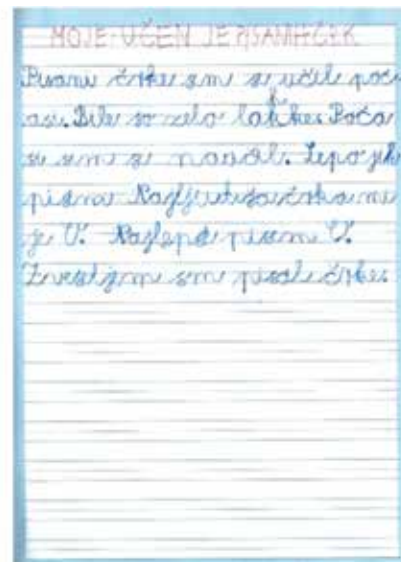 MOJE UČENJE PISANIH ČRK
Pisane črke sm se učil poč
asi. Bile so zelo lahke. Poča
si sem se naučil. Lepo jih
pišem. Najljubša črka mi
je U. Najlepše pišem U.
Z veseljem sm pisal črke.